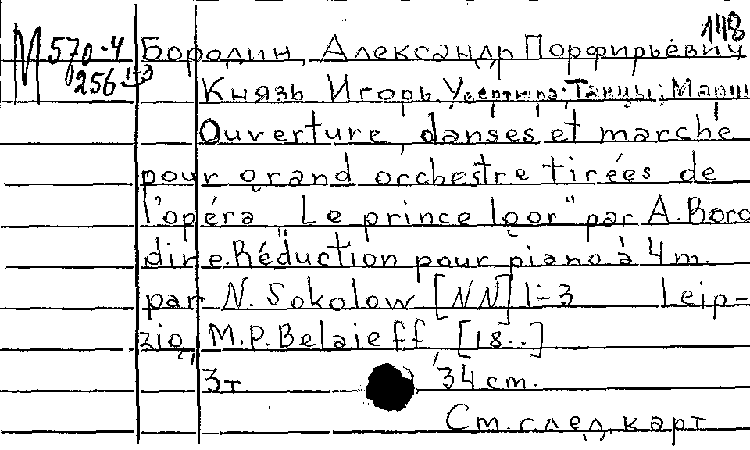 148
М 570-4 Бородин, Александр Порфирьевич
256 1-3 Князь Игорь. Увертюра; Танцы; Марш
Ouverture, danses et marche
pour grand orchestre tirées de
l'opéra „Le prince Igor" par A. Boro
dine. Réduction pour piano à 4 m.
par N. Sokolow [NN] 1-3 Leip-
zig, M.P. Belaieff [18..]
3т 34 cm.
См. след. карт